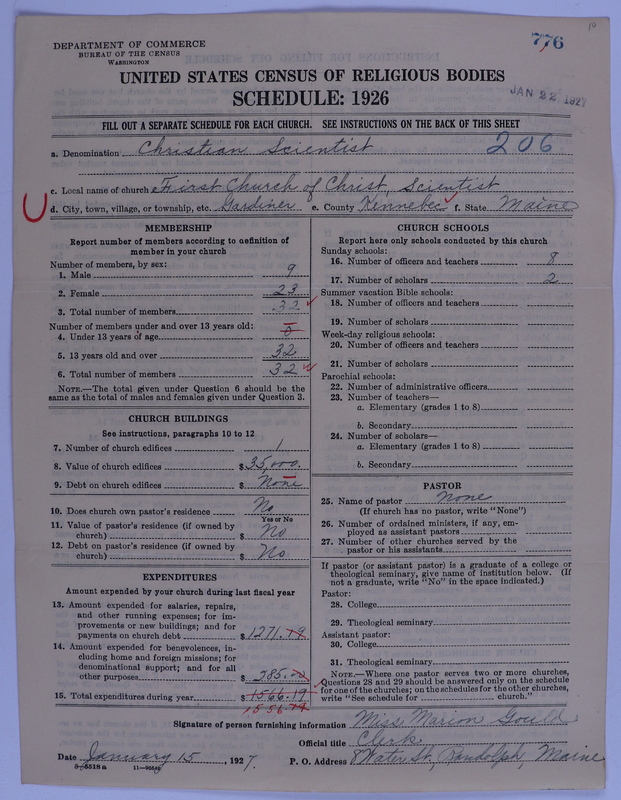 10
776
DEPARTMENT OF COMMERCE
BUREAU OF THE CENSUS
WASHINGTON
UNITED STATES CENSUS OF RELIGIOUS BODIES
SCHEDULE: 1926
JAN 22 1927
FILL OUT A SEPARATE SCHEDULE FOR EACH CHURCH. SEE INSTRUCTIONS ON THE BACK OF THIS SHEET
a. Denomination Christian Scientist 206
c. Local name of church First Church of Christ, Scientist
d. City, town, village, or township, etc. Gardiner e. County Kennebec f. State Maine
MEMBERSHIP
Report number of members according to definition of
member in your church
Number of members, by sex:
1. Male 9
2. Female 23
3. Total number of members 32
Number of members under and over 13 years old:
4. Under 13 years of age 0
5. 13 years old and over 32
6. Total number of members 32
NOTE.—The total given under Question 6 should be the
same as the total of males and females given under Question 3.
CHURCH BUILDINGS
See instructions, paragraphs 10 to 12
7. Number of church edifices 1
8. Value of church edifices $ 35,000.
9. Debt on church edifices $ None
10. Does church own pastor's residence No
Yes or No
11. Value of pastor's residence (if owned by
church) $ No
12. Debt on pastor's residence (if owned by
church) $ No
EXPENDITURES
Amount expended by your church during last fiscal year
13. Amount expended for salaries, repairs,
and other running expenses; for im-
provements or new buildings; and for
payments on church debt $ 1271.19
14. Amount expended for benevolences, in-
cluding home and foreign missions; for
denominational support; and for all
other purposes $ 285.00
15. Total expenditures during year $ 1566.19
1556
CHURCH SCHOOLS
Report here only schools conducted by this church
Sunday schools:
16. Number of officers and teachers 8
17. Number of scholars 2
Summer vacation Bible schools:
18. Number of officers and teachers
19. Number of scholars
Week-day religious schools:
20. Number of officers and teachers
21. Number of scholars
Parochial schools:
22. Number of administrative officers
23. Number of teachers—
a. Elementary (grades 1 to 8)
b. Secondary
24. Number of scholars—
a. Elementary (grades 1 to 8)
b. Secondary
PASTOR
25. Name of pastor None
(If church has no pastor, write "None")
26. Number of ordained ministers, if any, em-
ployed as assistant pastors
27. Number of other churches served by the
pastor or his assistants
If pastor (or assistant pastor) is a graduate of a college or
theological seminary, give name of institution below. (If
not a graduate, write "No" in the space indicated.)
Pastor:
28. College
29. Theological seminary
Assistant pastor:
30. College
31. Theological seminary
NOTE.—Where one pastor serves two or more churches,
Questions 28 and 29 should be answered only on the schedule
for one of the churches; on the schedules for the other churches,
write "See schedule for church."
Signature of person furnishing information Miss Marion Gould
Official title Clerk
Date January 15, 1927. P. O. Address 8 Water St, Randolph, Maine
8-5518a